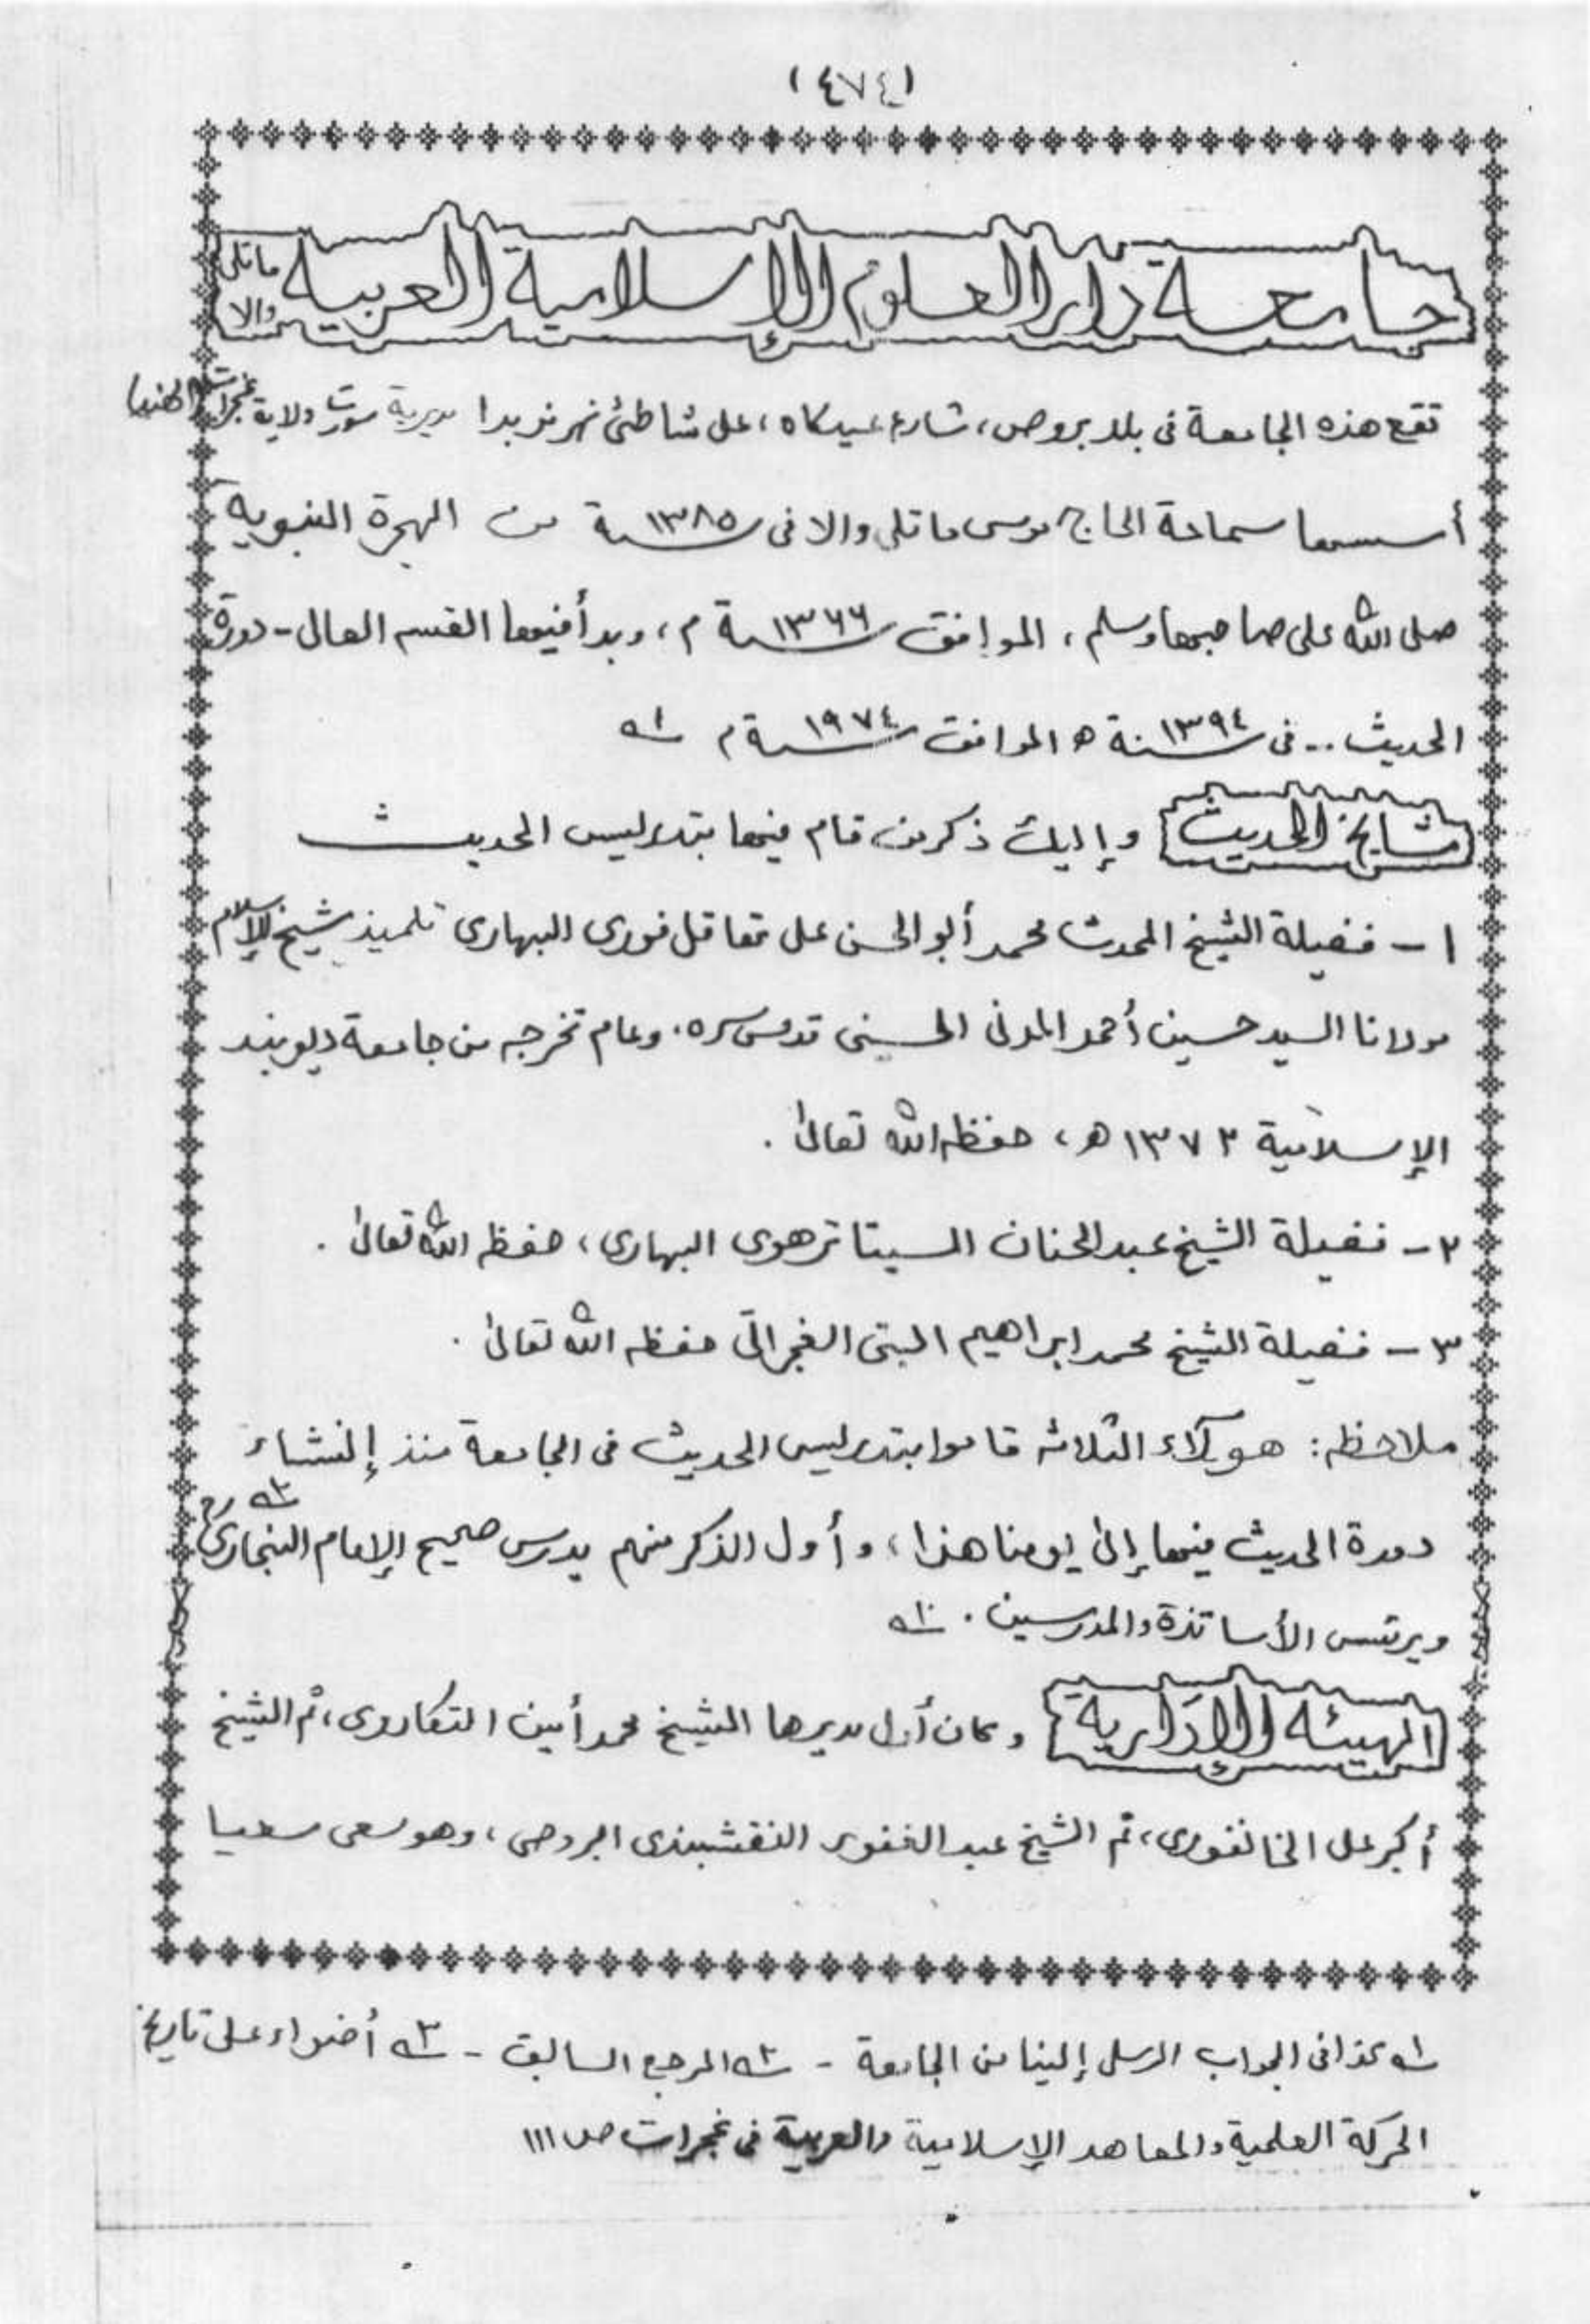 (٤٧٤)
جامعة دار العلوم الإسلامية العربية ماتلى والا
تقع هذه الجامعة فى بلد بروص، شارع عيدكاه، على شاطئ نهر نربدا مديرية سورت ولاية غجرات الهند
أسسها سماحة الحاج موسى ماتلى والا فى سنة ١٣٨٥ من الهجرة النبوية
صلى الله على صاحبها وسلم، الموافق سنة ١٣٦٦ م، وبدأ فيها القسم العالى - دورة
الحديث .. فى سنة ١٣٩٤ ه الموافق سنة ١٩٧٤ م ١ـه
مشايخ الحديث وإليك ذكر من قام فيها بتدريس الحديث
١ - فضيلة الشيخ المحدث محمد أبو الحسن على تفاقل فورى البهارى تلميذ شيخ الإسلام
مولانا السيد حسين أحمد المدنى الحسينى قدس سره، وعام تخرجه من جامعة ديوبند
الإسلامية ١٣٧٢ ه، حفظه الله تعالى .
٢ - فضيلة الشيخ عبد الحنان السيتا ترهوى البهارى، حفظه الله تعالى .
٣ - فضيلة الشيخ محمد ابراهيم البتنى الغجراتى حفظه الله تعالى .
ملاحظه: هؤلاء الثلاثه قاموا بتدريس الحديث فى الجامعة منذ إنشاء
دورة الحديث فيها إلى يومنا هذا، وأول الذكر منهم يدرس صحيح الإمام البخارى رح ٢ـه
ويرئس الأساتذة والمدرسين . ١ـه
الهيئه الإدارية وكان أول مديرها الشيخ محمد أمين التكاروى، ثم الشيخ
أكبر على الخانفورى، ثم الشيخ عبد الغفور النقشبندى البروصى، وهو سعى سعيا
١ـه كذا فى الجواب المرسل إلينا من الجامعة - ٢ـه المرجع السابق - ٣ـه أضواء على تاريخ
الحركة العلمية والمعاهد الإسلامية والعربية فى غجرات ص ١١١